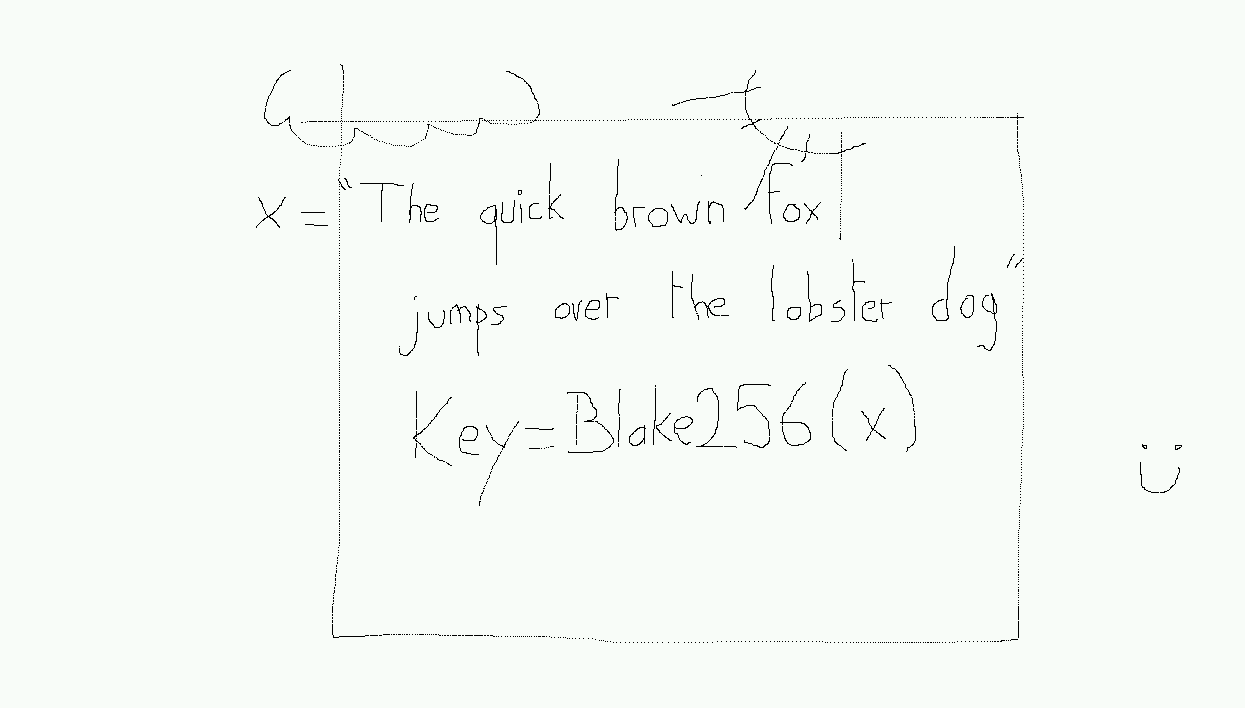 x = "The quick brown fox"
jumps over the lobster dog"
Key=Blake256(x)